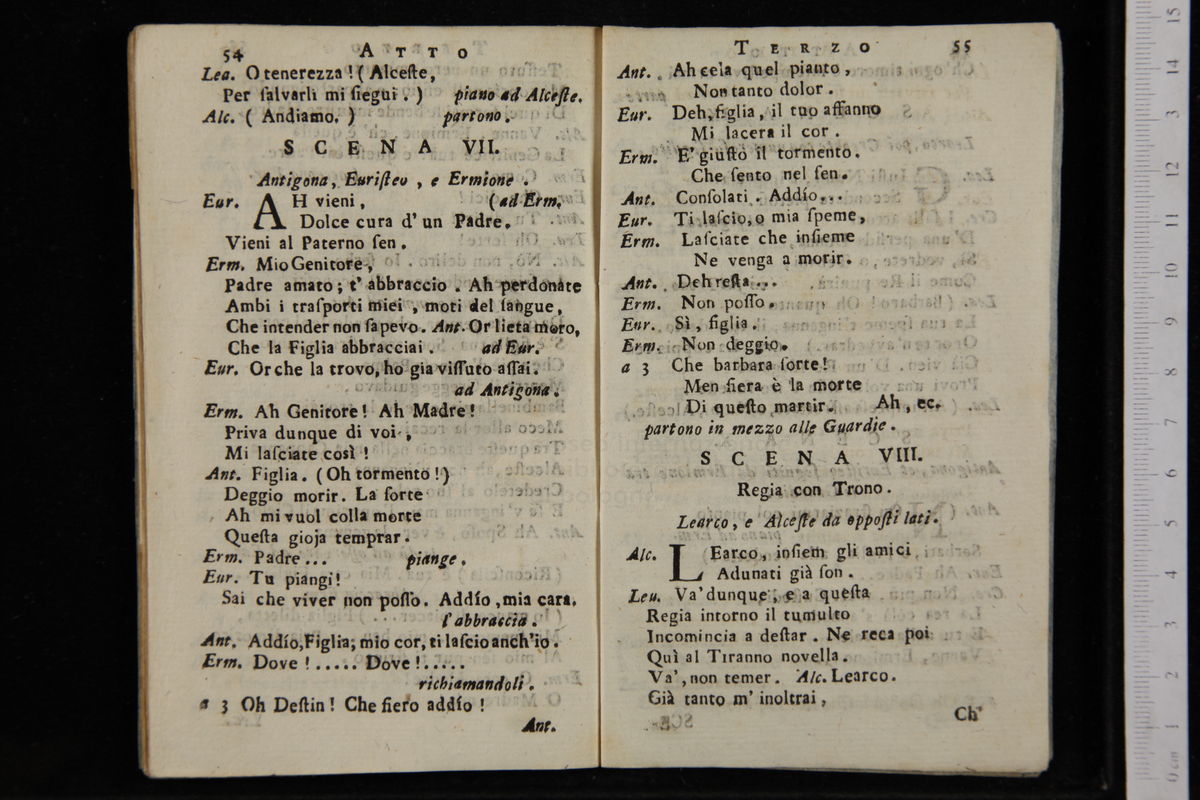 54 ATTO
Lea. O tenerezza! (Alceſte,
Per ſalvarli mi ſiegui.) piano ad Alceſte.
Alc. (Andiamo.) partono.
SCENA VII.
Antigona, Euriſteo, e Ermione.
Eur. AH vieni, (ad Erm.
Dolce cura d' un Padre,
Vieni al Paterno ſen.
Erm. Mio Genitore,
Padre amato; t' abbraccio. Ah perdonate
Ambi i traſporti miei, moti del ſangue,
Che intender non ſapevo. Ant. Or lieta moro,
Che la Figlia abbracciai. ad Eur.
Eur. Or che la trovo, ho gia viſſuto aſſai.
ad Antigona.
Erm. Ah Genitore! Ah Madre!
Priva dunque di voi,
Mi laſciate così!
Ant. Figlia. (Oh tormento!)
Deggio morir. La ſorte
Ah mi vuol colla morte
Queſta gioja temprar.
Erm. Padre... piange.
Eur. Tu piangi!
Sai che viver non poſſo. Addío, mia cara.
ſ'abbraccia.
Ant. Addío, Figlia; mio cor, ti laſcio anch'io.
Erm. Dove!..... Dove!.....
richiamandoli.
a 3 Oh Deſtin! Che fiero addío!
Ant.
TERZO 55
Ant. Ah cela quel pianto,
Non tanto dolor.
Eur. Deh, figlia, il tuo affanno
Mi lacera il cor.
Erm. E' giuſto il tormento.
Che ſento nel ſen.
Ant. Conſolati. Addío...
Eur. Ti laſcio, o mia ſpeme,
Erm. Laſciate che inſieme
Ne venga a morir.
Ant. Deh reſta...
Erm. Non poſſo.
Eur. Sì, figlia.
Erm. Non deggio.
a 3 Che barbara ſorte!
Men fiera è la morte
Di queſto martir. Ah, ec.
partono in mezzo alle Guardie.
SCENA VIII.
Regia con Trono.
Learco, e Alceſte da oppoſti lati.
Alc. LEarco, inſiem gli amici
Adunati già ſon.
Lea. Va' dunque, e a queſta
Regia intorno il tumulto
Incomincia a deſtar. Ne reca poi
Quì al Tiranno novella.
Va', non temer. Alc. Learco.
Già tanto m' inoltrai,
Ch'